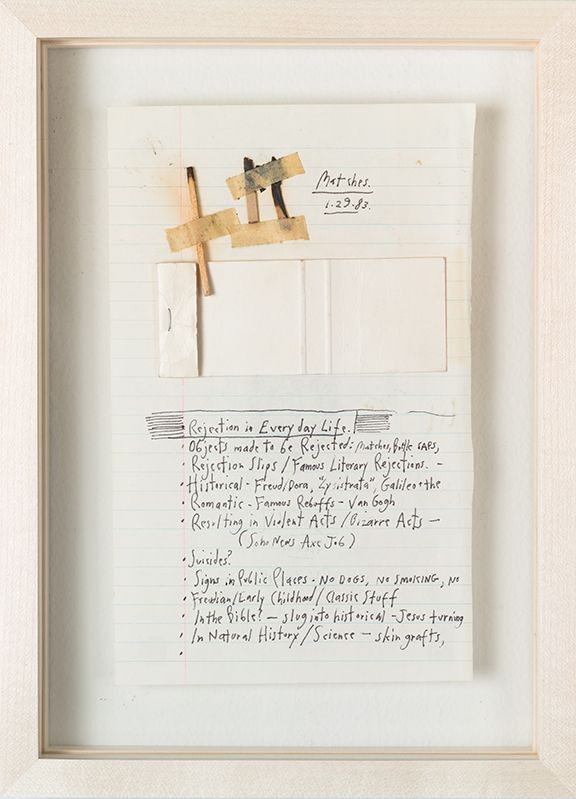 Matches.
1.29.83.
Rejection in Everyday Life.
• Objects made to be Rejected: Matches, Bottle CAPS,
• Rejection Slips / Famous Literary Rejections. -
• Historical - Freud/Dora, "Lysistrata", Galileo + the
• Romantic - Famous Reboffs - Van Gogh
• Resulting in Violent Acts / Bizarre Acts -
(Soho News Axe Job)
• Suicides?
• Signs in Public Places - NO DOGS, NO SMOKING, NO
• Freudian / Early Childhood / Classic Stuff
• In the Bible? - slug into historical - Jesus turning
• In Natural History / Science - skin grafts,
•